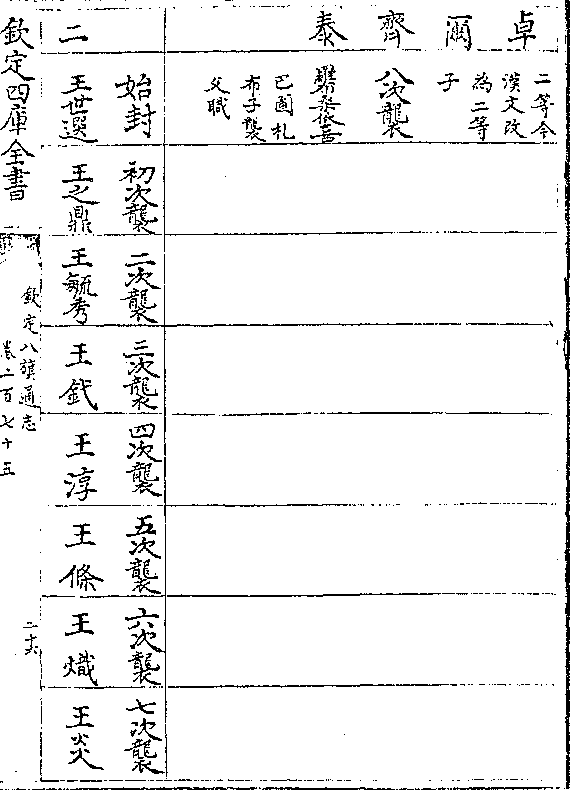 卓爾齊泰
二等今
漢文改
為二等
子
八次襲
巴圖札
布子襲
父職
二
始封
王世選
初次襲
王之鼎
二次襲
王毓秀
三次襲
王
四次襲
王淳
五次襲
王條
六次襲
王熾
七次襲
王炎
欽定四庫全書
欽定八旗通志
卷二百七十五
二十六